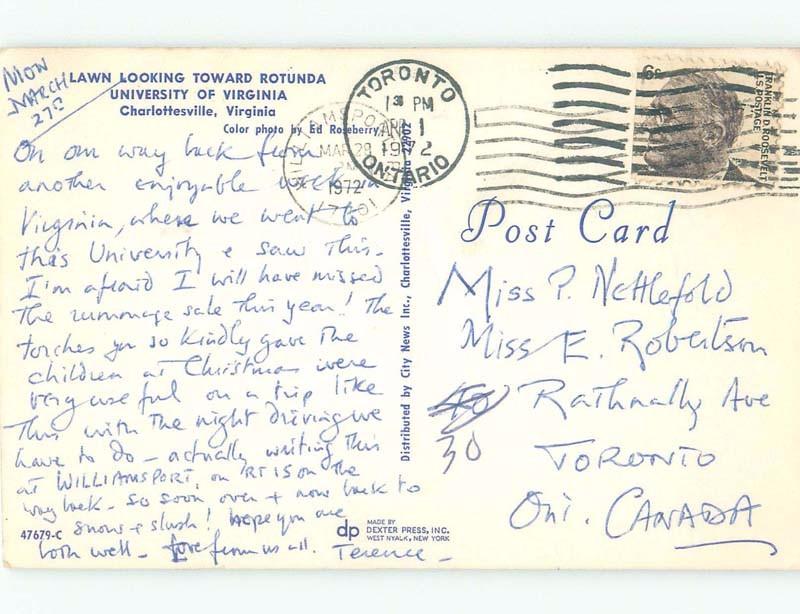 Mon
MARCH
27th
LAWN LOOKING TOWARD ROTUNDA
UNIVERSITY OF VIRGINIA
Charlottesville, Virginia
Color photo by Ed Roseberry
On our way back from
another enjoyable week in
Virginia, where we went to
this University & saw this.
I'm afraid I will have missed
the rummage sale this year! The
torches you so kindly gave the
children at Christmas were
very useful on a trip like
this with the night driving we
have to do - actually writing this
at WILLIAMSPORT, on RT 15 on the
way back - so soon over + now back to
snow + slush! hope you are
both well - Love from us all. Terence -
47679-C
dp
MADE BY
DEXTER PRESS, INC.
WEST NYACK, NEW YORK
Distributed by City News Inc., Charlottesville, Virginia 22902
MAR 28
1972
TORONTO
PM
1
ONTARIO
6¢
FRANKLIN D. ROOSEVELT
U.S. POSTAGE
Post Card
Miss P. Nettlefold
Miss E. Robertson
Rathnally Ave
30
TORONTO
Ont. CANADA